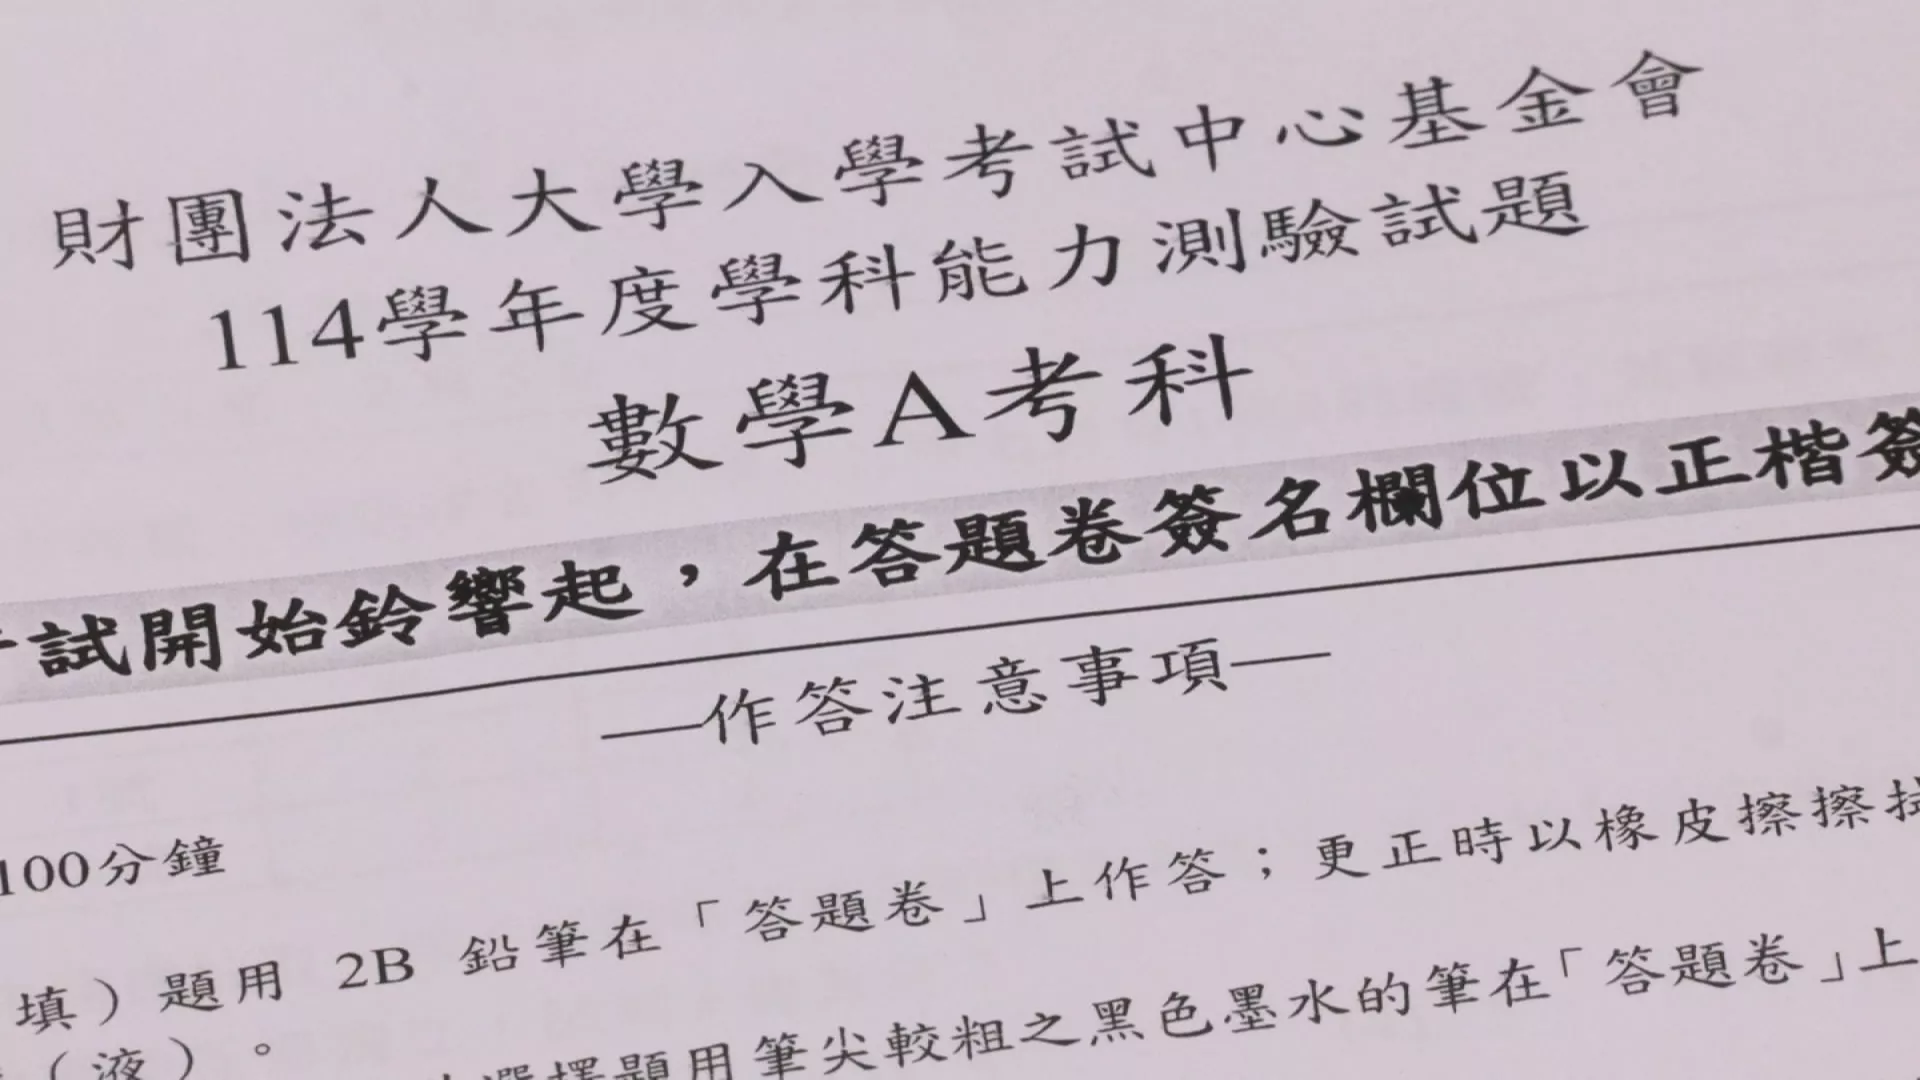 財團法人大學入學考試中心基金會
114學年度學科能力測驗試題
數學A考科
試開始鈴響起，在答題卷簽名欄位以正楷簽
—作答注意事項—
100分鐘
填）題用 2B 鉛筆在「答題卷」上作答；更正時以橡皮擦擦拭
（液）。
選擇題用筆尖較粗之黑色墨水的筆在「答題卷」上